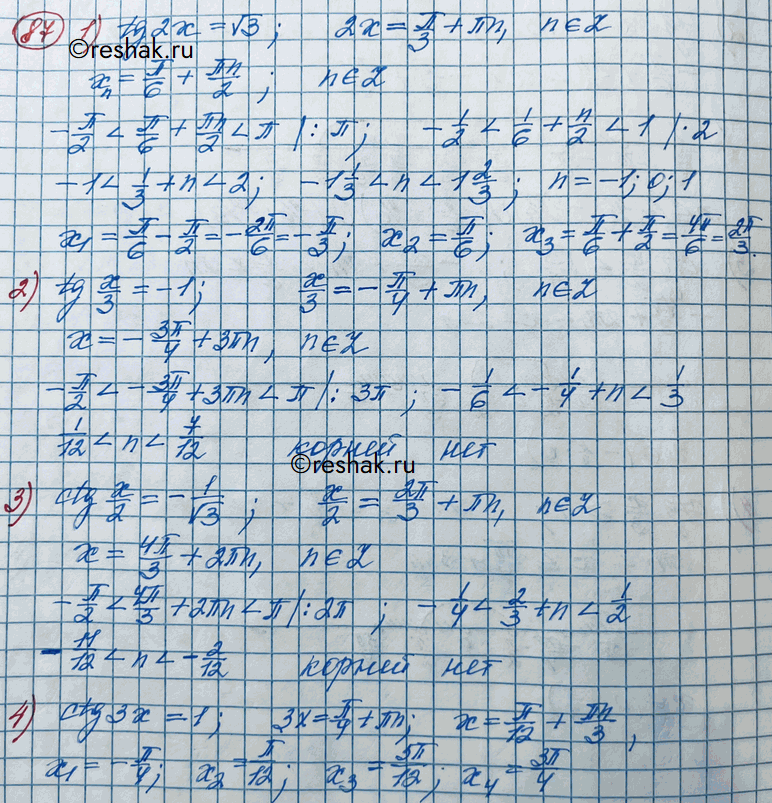 87 1) tg 2x = √3; 2x = π/3 + πn, n∈Z
©reshak.ru
xₙ = π/6 + πn/2; n∈Z
-π/2 < π/6 + πn/2 < π |: π; -1/2 < 1/6 + n/2 < 1 |·2
-1 < 1/3 + n < 2; -1 1/3 < n < 1 2/3; n = -1; 0; 1
x₁ = π/6 - π/2 = -2π/6 = -π/3; x₂ = π/6; x₃ = π/6 + π/2 = 4π/6 = 2π/3.
2) tg x/3 = -1; x/3 = -π/4 + πn, n∈Z
x = -3π/4 + 3πn, n∈Z
-π/2 < -3π/4 + 3πn < π |: 3π; -1/6 < -1/4 + n < 1/3
1/12 < n < 7/12 корней нет
©reshak.ru
3) ctg x/2 = -1/√3; x/2 = 2π/3 + πn, n∈Z
x = 4π/3 + 2πn, n∈Z
-π/2 < 4π/3 + 2πn < π |: 2π; -1/4 < 2/3 + n < 1/2
-11/12 < n < -2/12 корней нет
4) ctg 3x = 1; 3x = π/4 + πn; x = π/12 + πn/3,
x₁ = -π/4; x₂ = π/12; x₃ = 5π/12; x₄ = 3π/4